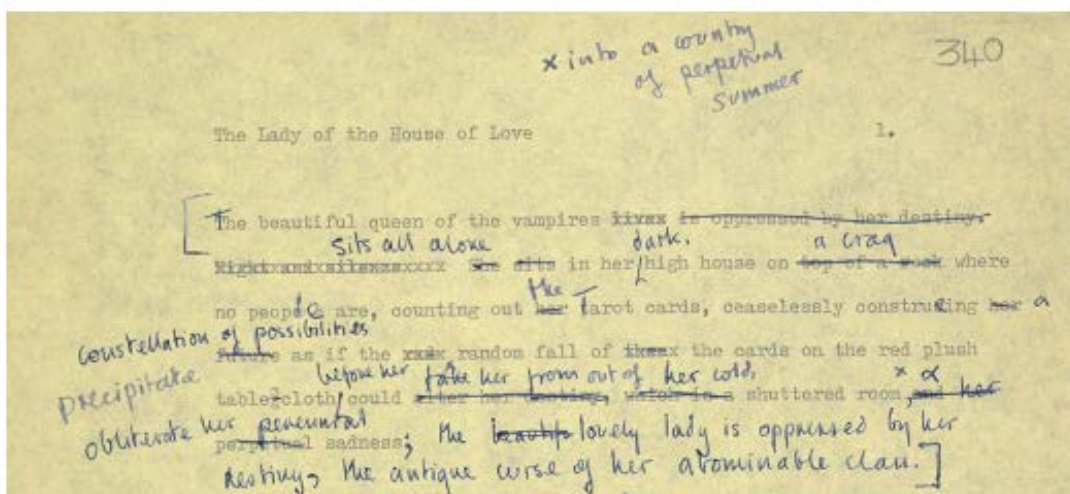 x into a country
of perpetual
summer
340
The Lady of the House of Love 1.
The beautiful queen of the vampires is oppressed by her destiny.
sits all alone dark, a crag
She sits in her high house on top of a rock where
the
no people are, counting out her Tarot cards, ceaselessly constructing her a
constellation of possibilities
future as if the random fall of the cards on the red plush
precipitate
before her take her from out of her cold, x &
table-cloth could alter her destiny, which is a shuttered room, and her
obliterate her perennial
perpetual sadness; the lovely lady is oppressed by her
destiny, the antique curse of her abominable clan.]